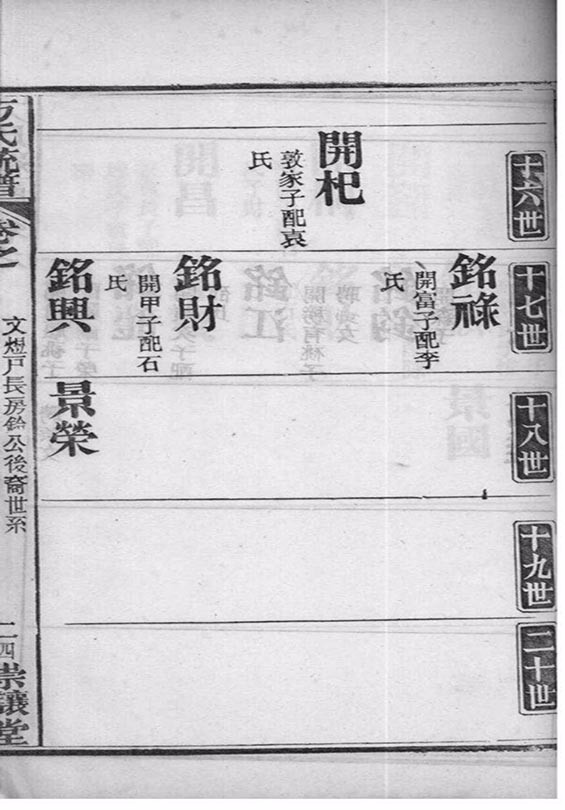 十六世
十七世
十八世
十九世
二十世
銘祿
開富子配李
氏
開杞
敦家子配袁
氏
銘財
開甲子配石
氏
銘興
景榮
方氏統譜
卷之
文煜戶長房鈴公後裔世系
二四
崇讓堂